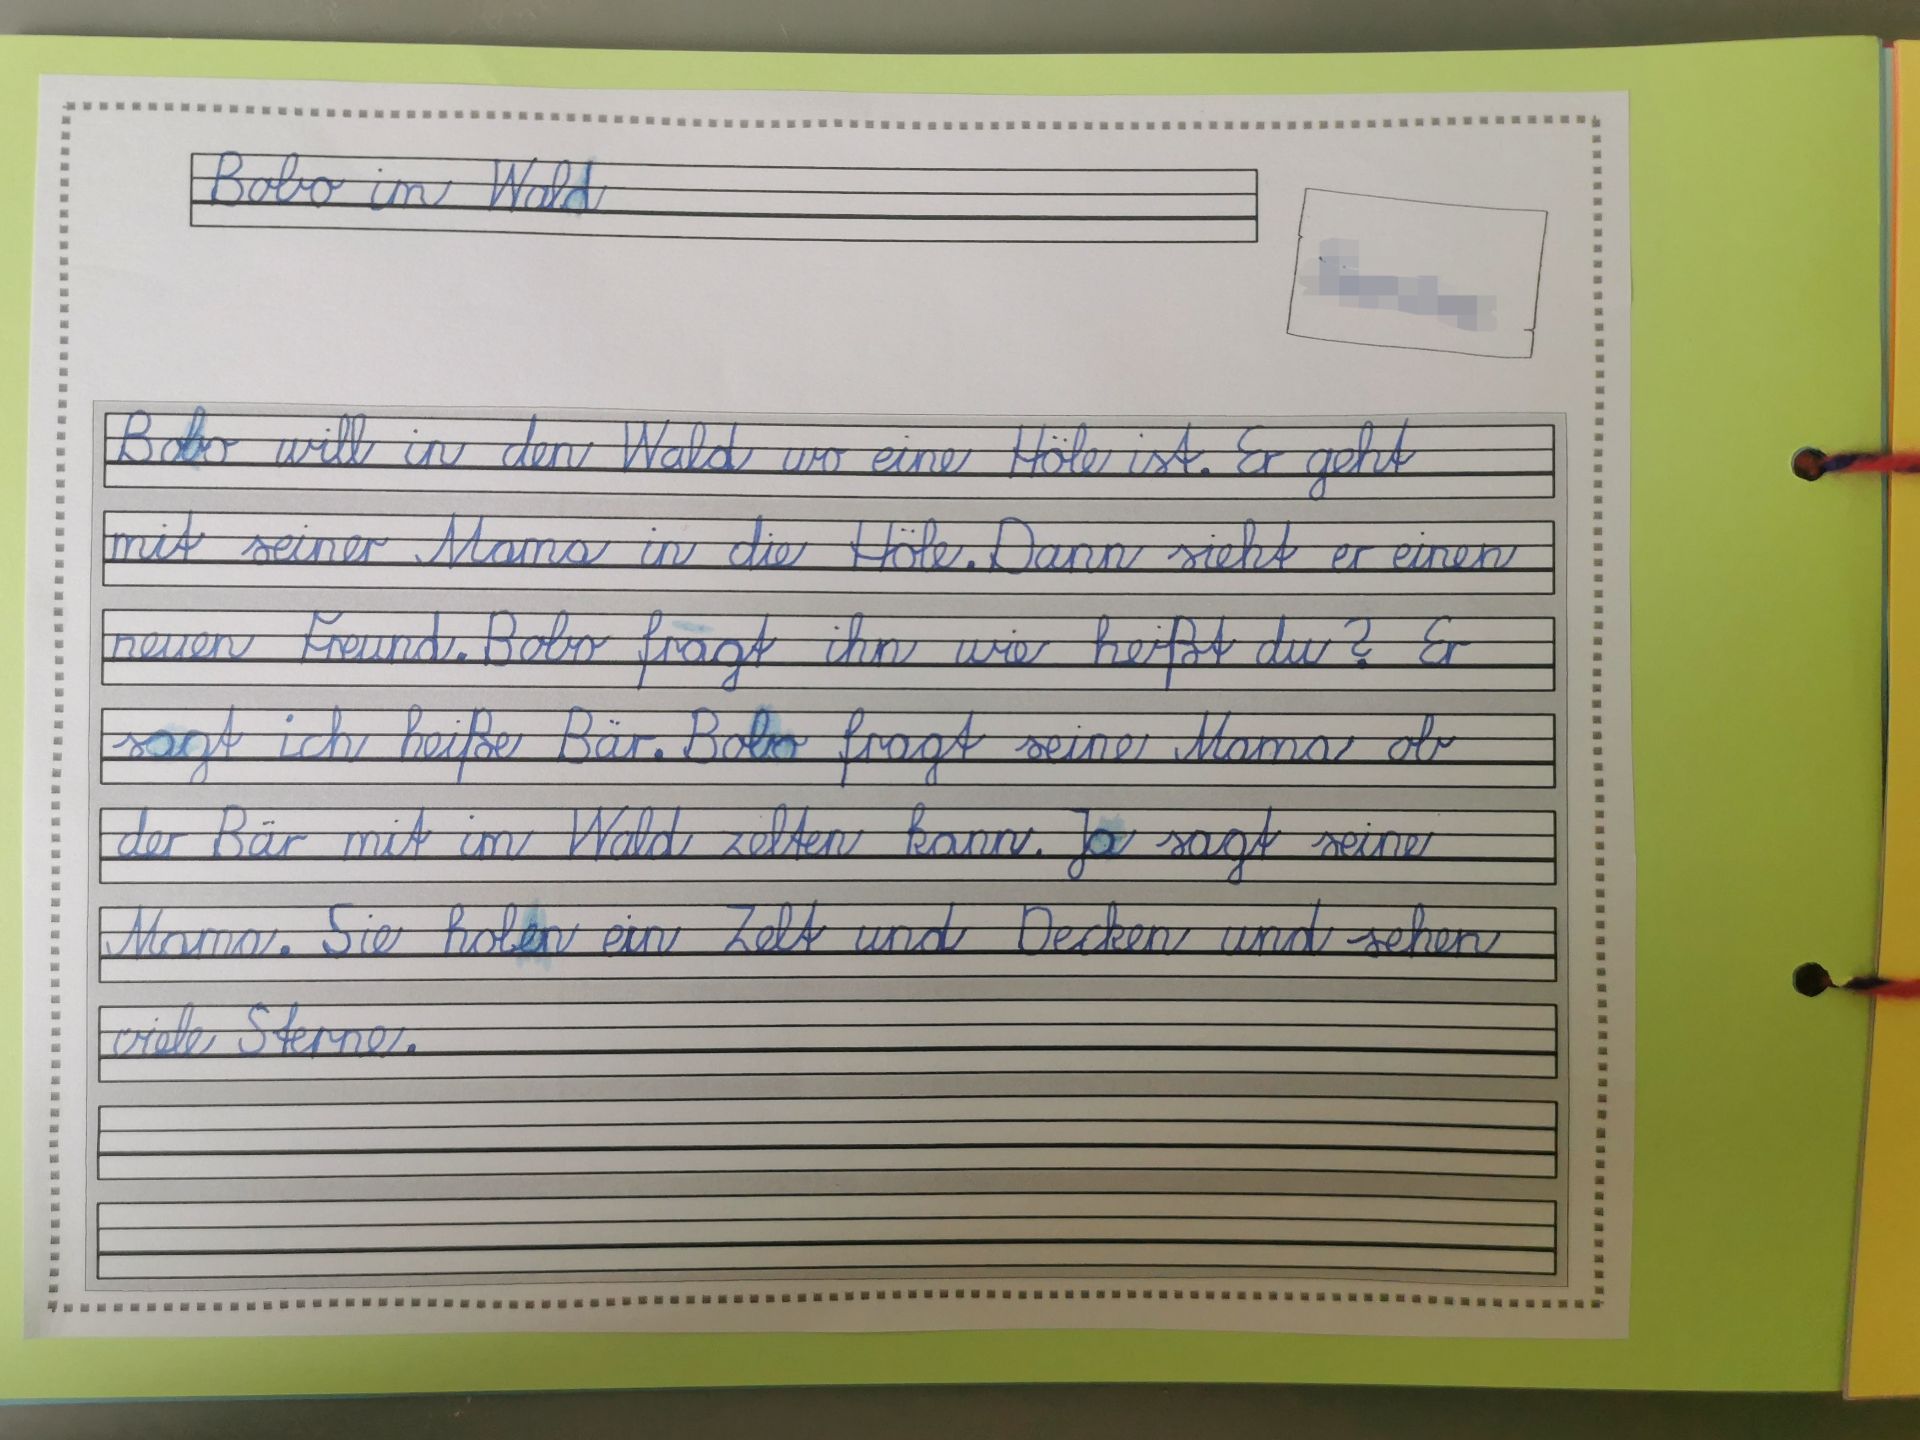 Bobo im Wald
Bobo will in den Wald wo eine Höle ist. Er geht
mit seiner Mama in die Höle. Dann sieht er einen
neuen Freund. Bobo fragt ihn wie heißt du? Er
sagt ich heiße Bär. Bobo fragt seine Mama ob
der Bär mit im Wald zelten kann. Ja sagt seine
Mama. Sie holen ein Zelt und Decken und sehen
viele Sterne.